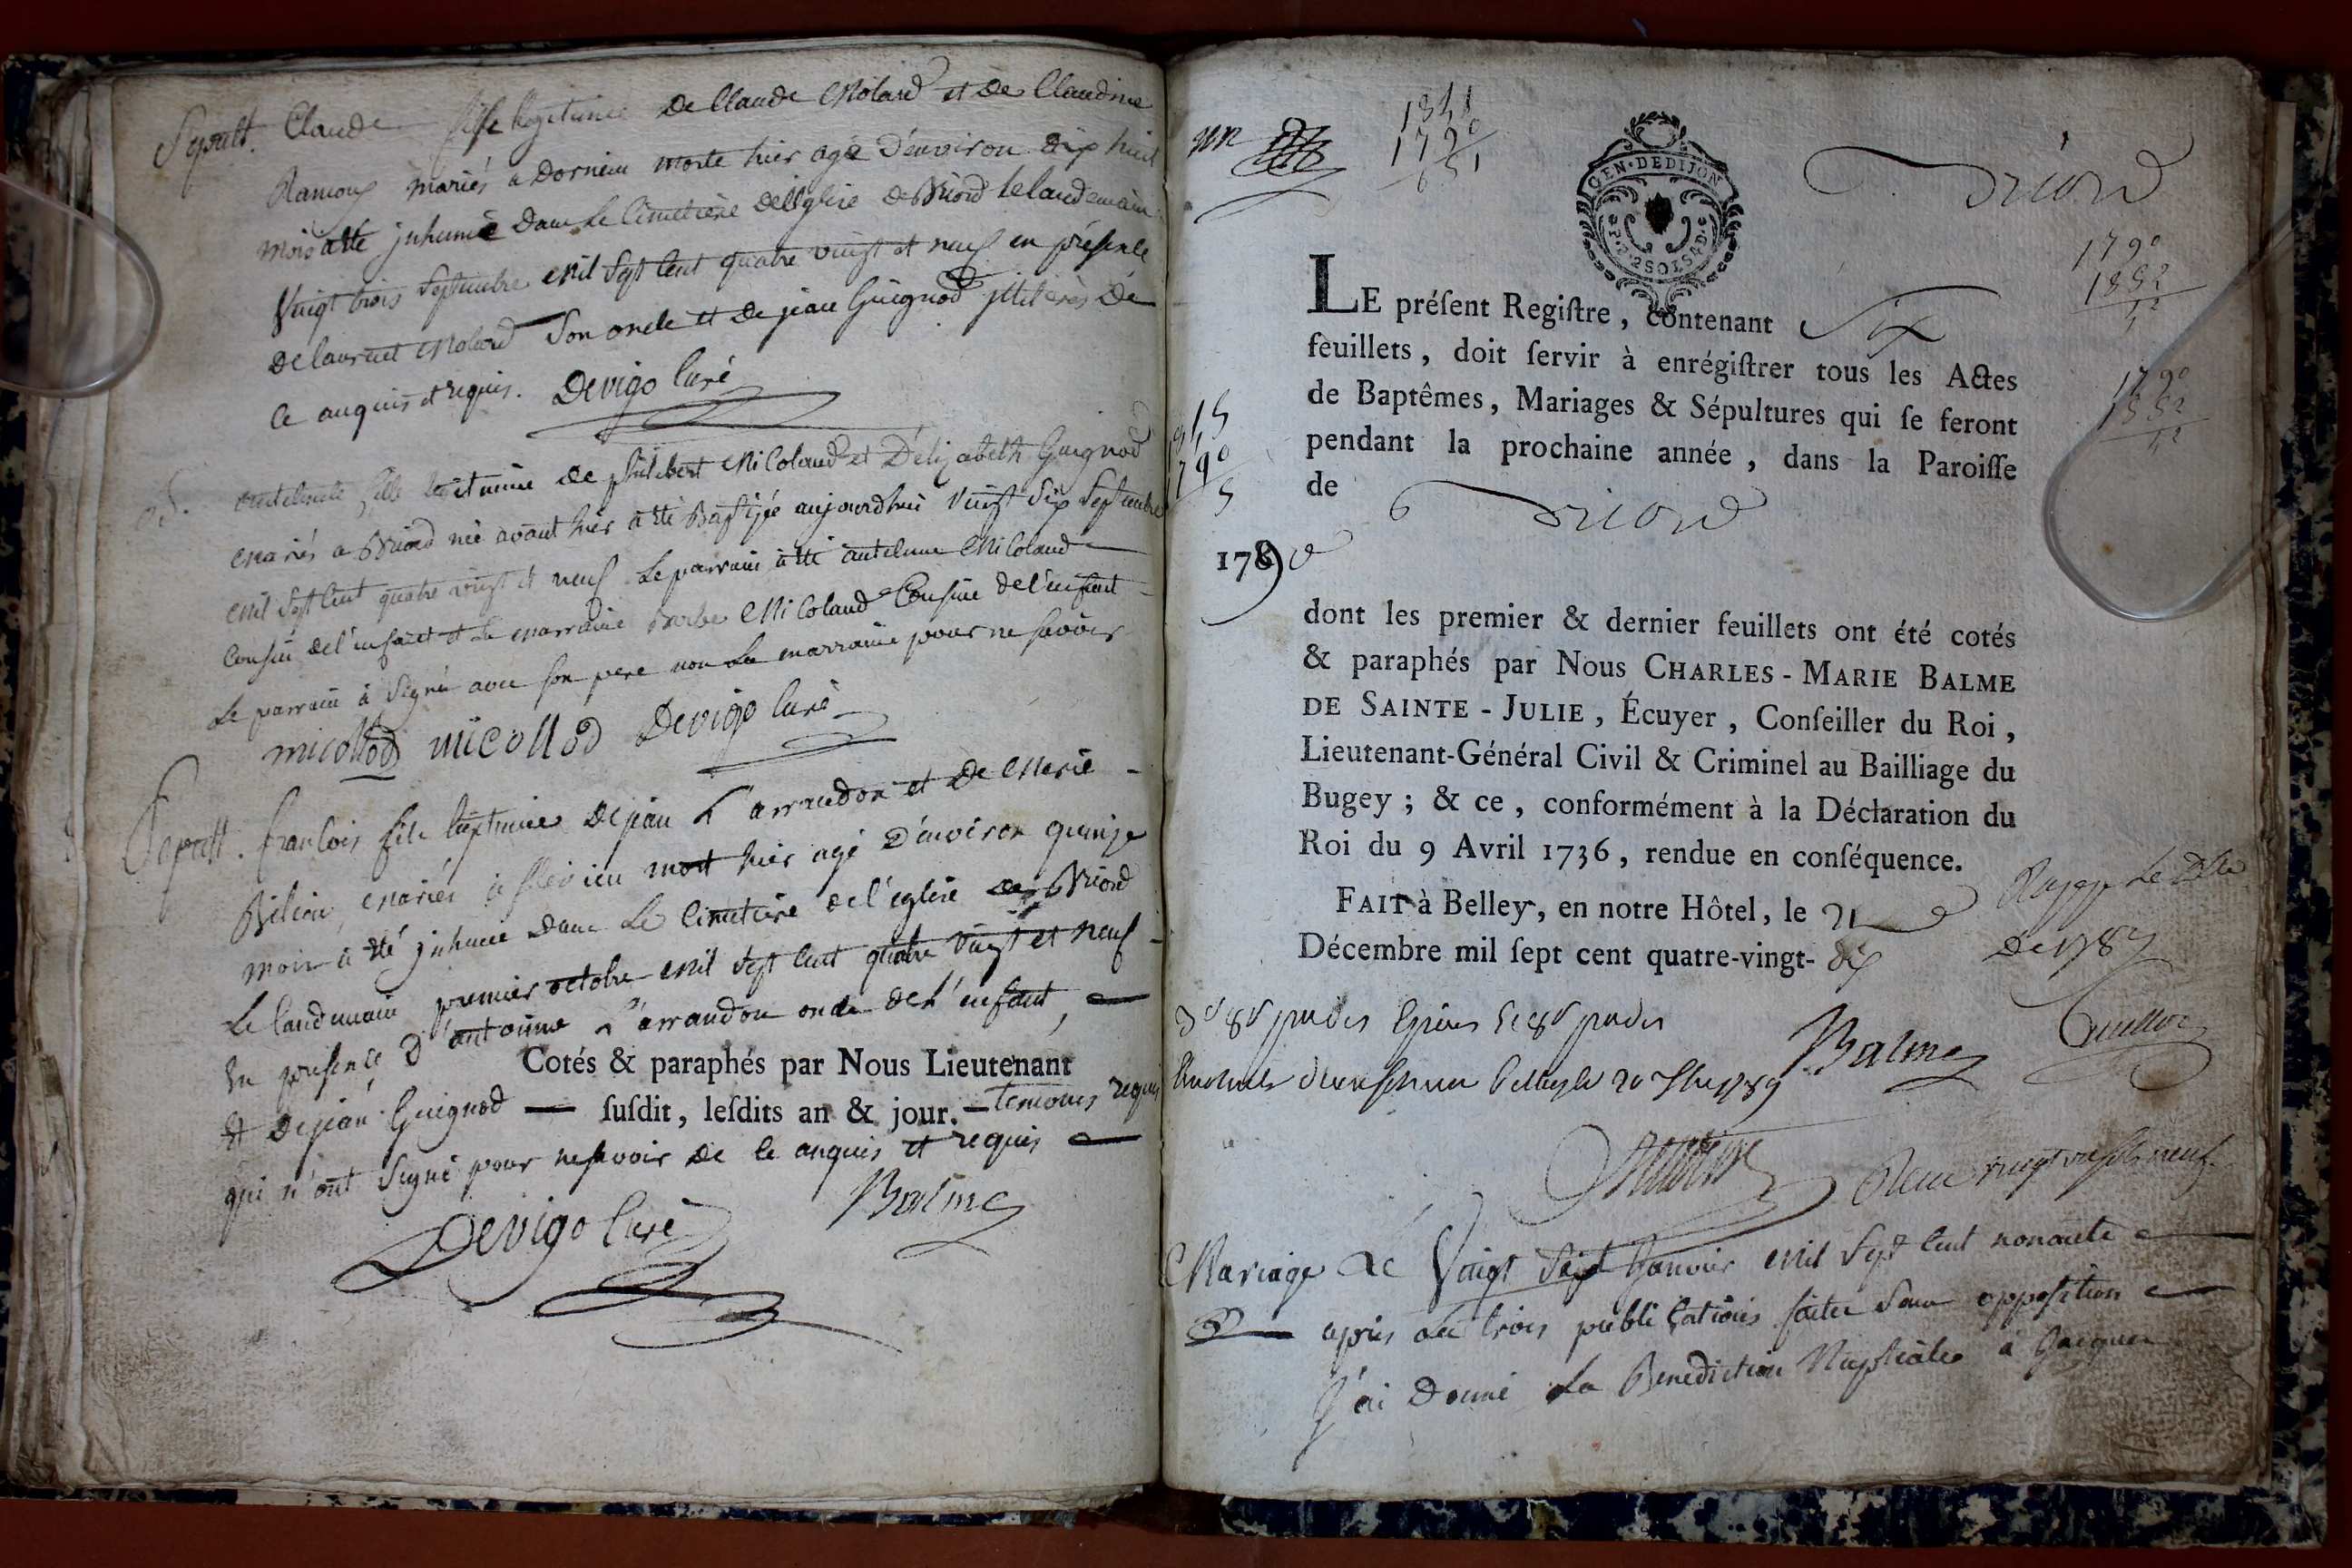 Sepult. Claude fille legitime de Claude Molard et de Claudine
Ramoux mariés a Dornieu morte hier agée d'environ dix huit
mois a été inhumée dans le Cimetière de l'Eglise de Briord le landemain
Vingt trois Septembre mil Sept Cent quatre vingt et neuf en présence
de laurent Molard Son oncle et de jean Guignod illiterés de
ce anquis et requis. Devigo Curé
fille legitime de philibert Micolaud et D'elizabeth Guignod
mariés a Briord née avant hier a été Baptisée aujourdhui vingt Six Septembre
mil Sept Cent quatre vingt et neuf Le parrain a été antelme Micolaud
Cousin de l'enfant et la marraine Barbe Micolaud Cousine de l'enfant
Le parrain à Signé avec son pere non la marraine pour ne savoir
micollod micollod Devigo Curé
Sepult. francois fils legitime de jean Larrandon et de Marie
mariés à flevieu mort hier agé D'environ quinze
mois a été inhumé dans Le Cimetiere de l'église de Briord
Le landemain premier octobre mil Sept Cent quatre vingt et neuf
En presence D'antoine Larrandon oncle de l'enfant,
Cotés & paraphés par Nous Lieutenant
et de jean Guignod — susdit, lesdits an & jour. — temoins requis
qui n'ont Signé pour ne savoir de ce anquis et requis
Devigo Curé Balme
un
1790
Briord
GEN·DEDIJON
1790
LE présent Registre, contenant Six
feuillets, doit servir à enrégistrer tous les Actes
de Baptêmes, Mariages & Sépultures qui se feront
pendant la prochaine année, dans la Paroisse
de Briord
1790
1790
dont les premier & dernier feuillets ont été cotés
& paraphés par Nous CHARLES-MARIE BALME
DE SAINTE-JULIE, Écuyer, Conseiller du Roi,
Lieutenant-Général Civil & Criminel au Bailliage du
Bugey; & ce, conformément à la Déclaration du
Roi du 9 Avril 1736, rendue en conséquence.
FAIT à Belley, en notre Hôtel, le 21
Décembre mil sept cent quatre-vingt-
De 1789
Balme
Mariage Le Vingt Sept Janvier mil Sept Cent nonante
après les trois publications faites Sans opposition
J'ai Donné La Benediction Nuptiale à Jacques